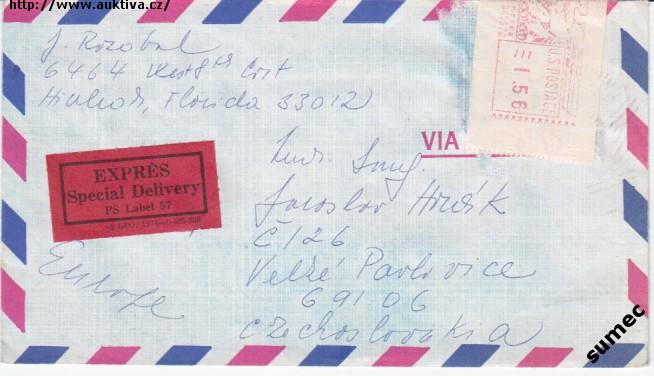 http://www.auktiva.cz/
J. Rozobal
6464 West 8th Cort
Hialeah, Florida 33012
U.S. POSTAGE
1.56
VIA
EXPRÈS
Special Delivery
PS Label 57
Jaroslav
Č 126
Velké Pavlovice
691 06
Czechoslovakia
Europe
sumec